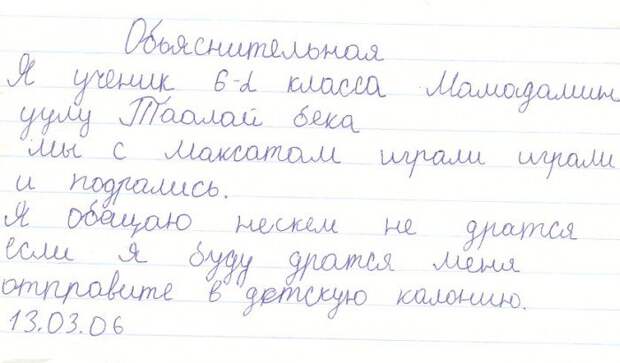 Обьяснительная
Я ученик 6-д класса Мамадамин
уулу Таалай бека
мы с Максатам играли играли
и подрались.
Я обещаю нескем не дратся
если я буду дратся меня
отправите в детскую калонию.
13.03.06